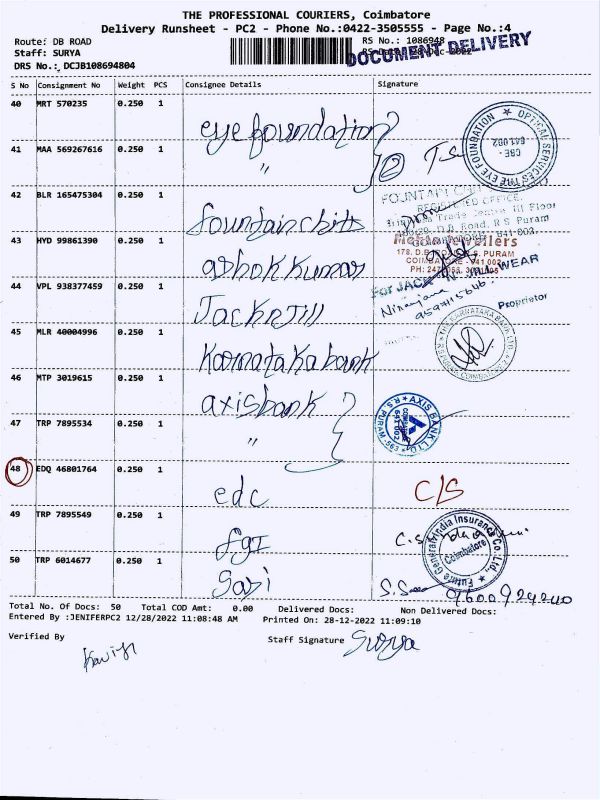 THE PROFESSIONAL COURIERS, Coimbatore
Delivery Runsheet - PC2 - Phone No.:0422-3505555 - Page No.:4
Route: DB ROAD
RS No.: 1086948
Staff: SURYA
DOCUMENT DELIVERY
DRS No.: DCJB108694804
S No Consignment No Weight PCS Consignee Details Signature
40 MRT 570235 0.250 1 eye foundation
41 MAA 569267616 0.250 1 "
OPTICAL SERVICES THE EYE FOUNDATION
CBE - 641 002
42 BLR 165475304 0.250 1 fountainchits
REGISTERED OFFICE,
III Floor
D.B. Road, R S Puram
43 HYD 99861390 0.250 1 ashok kumar
178, D.B. ROAD, R.S. PURAM
COIMBATORE - 641 002
44 VPL 938377459 0.250 1 JacknJill
For JACK N JILL WEAR
Proprietor
45 MLR 40004996 0.250 1 Karnataka bank
46 MTP 3019615 0.250 1 axis bank
47 TRP 7895534 0.250 1 "
AXIS BANK LTD.
R S PURAM
48 EDQ 46801764 0.250 1 edc C/S
49 TRP 7895549 0.250 1 fgi
Future Generali India Insurance Co. Ltd.,
Coimbatore
50 TRP 6014677 0.250 1
Total No. Of Docs: 50 Total COD Amt: 0.00 Delivered Docs: Non Delivered Docs:
Entered By :JENIFERPC2 12/28/2022 11:08:48 AM Printed On: 28-12-2022 11:09:10
Verified By Staff Signature Surya